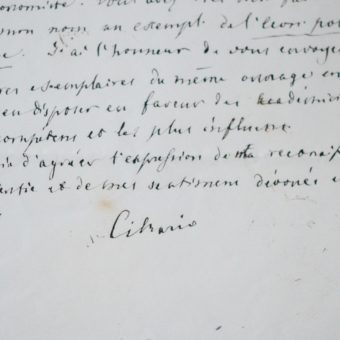 onomiste. Vous avez
mon nom un exempl. de l'Econ. pol
e. J'ai l'honneur de vous envoye
res exemplaires du même ouvrage en
en disposer en faveur des academi
compétens et les plus influens.
d'agréer l'expression de ma reconais
et de mes sentimens dévoués
Cibrario